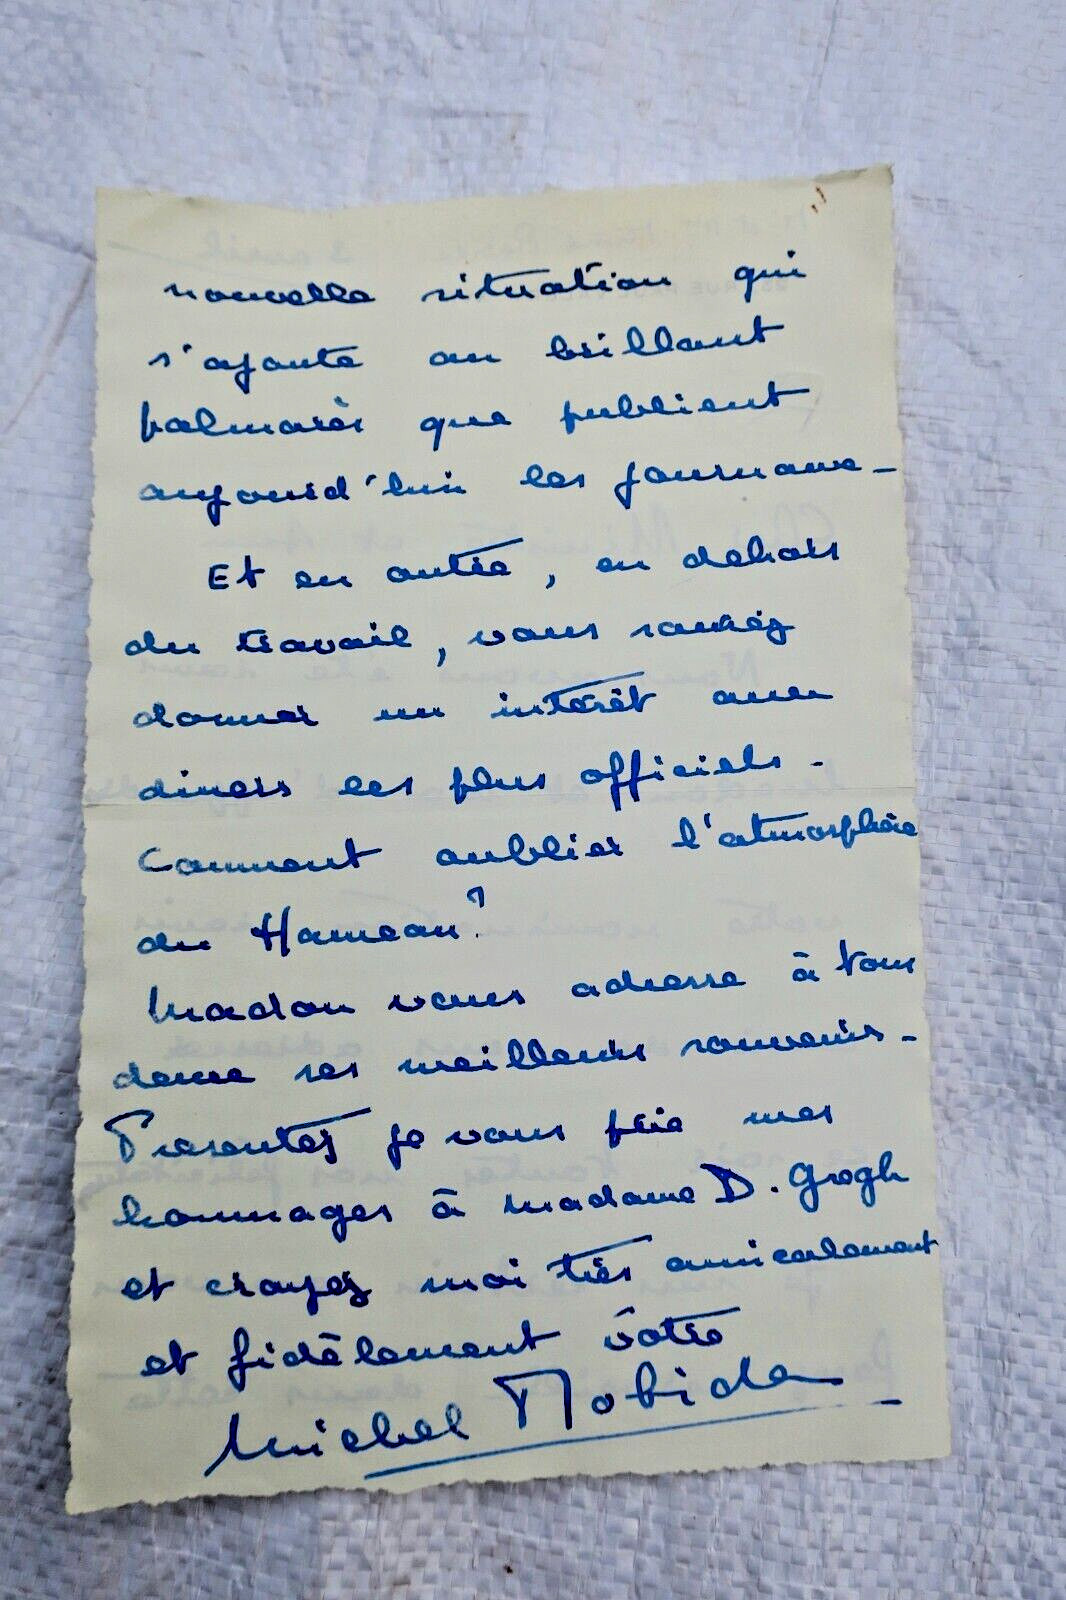 nouvelle situation qui
s'ajoute au brillant
palmarès que publient
aujourd'hui les journaux -
Et en outre, en dehors
du travail, vous saurez
donner un intérêt aux
diners les plus officiels -
Comment oublier l'atmosphère
du Hameau ?
Madon vous adresse à tous
deux ses meilleurs souvenirs -
Présentez je vous prie mes
hommages à madame D. Grogh
et croyez moi très amicalement
et fidèlement vôtre
Michel Robida